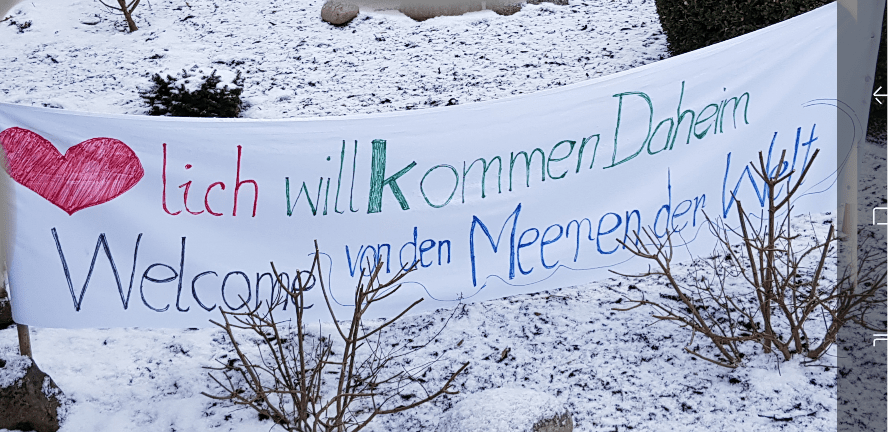 lich willkommen Daheim
Welcome von den Meeren der Welt